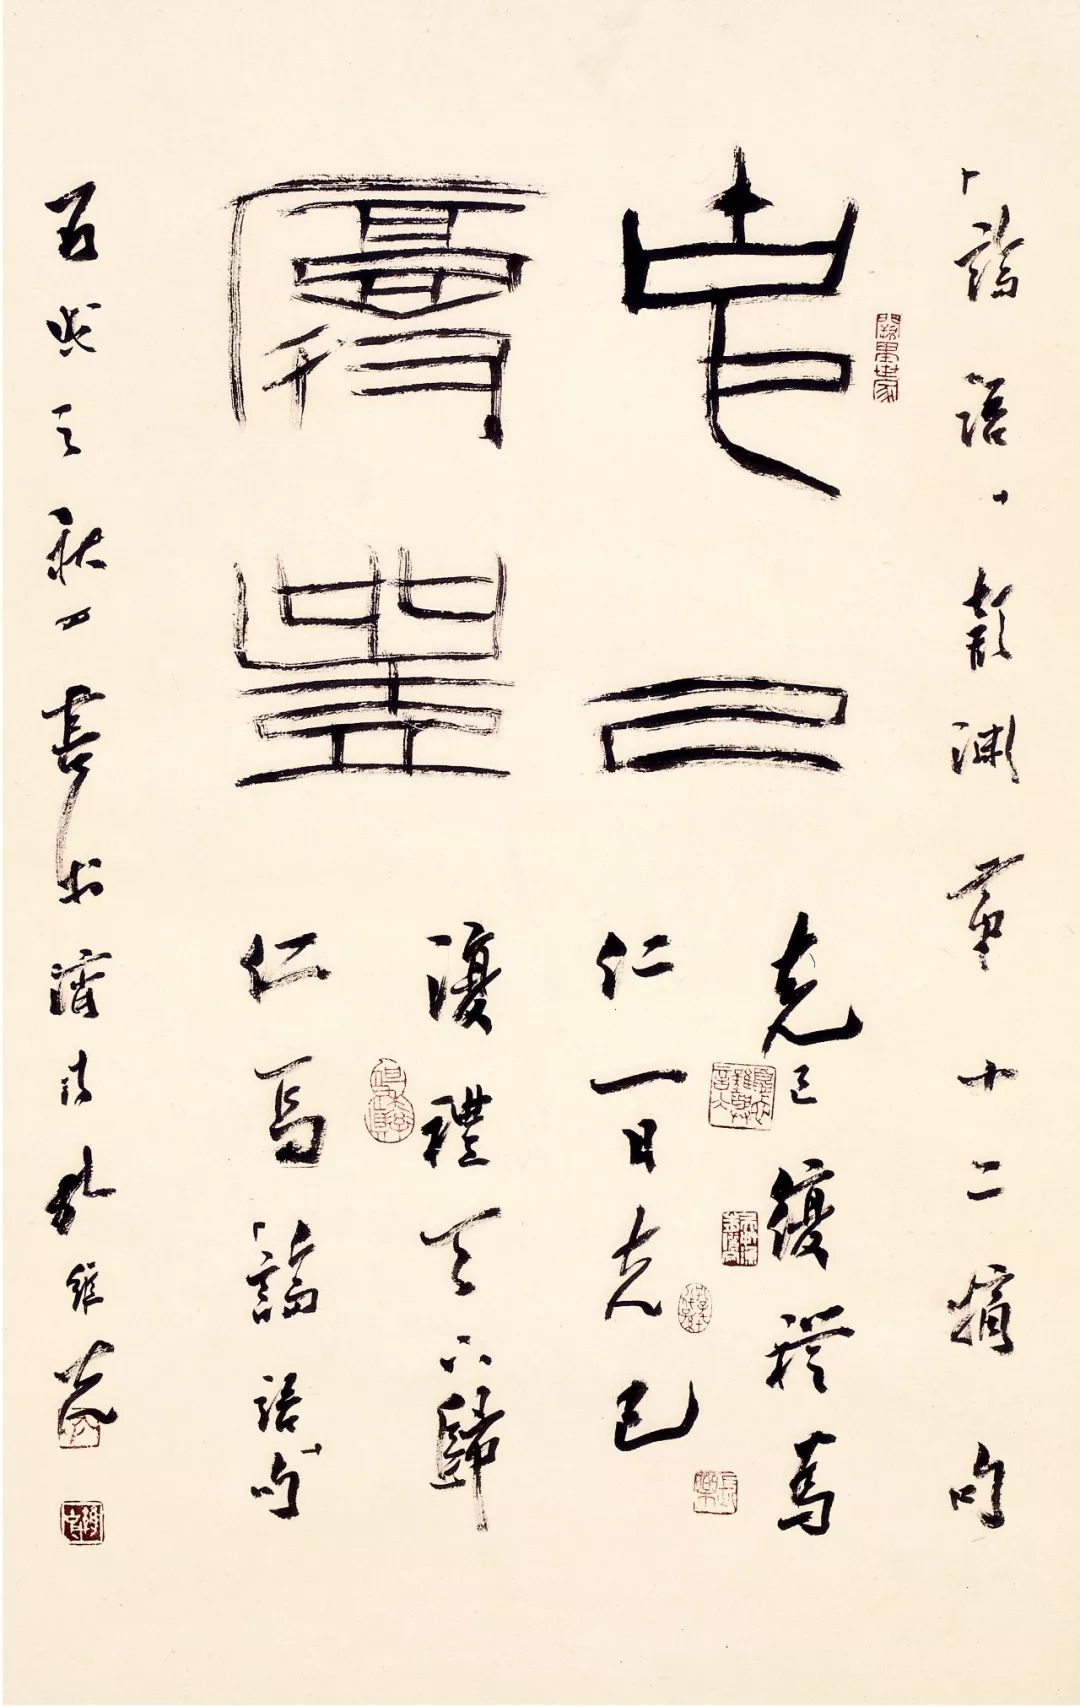 「論語」顏淵篇十二摘句
克己
復豊
克己復禮為
仁一日克己
復禮天下歸
仁焉「論語」句
戊戌之秋日書於濟南孔維克